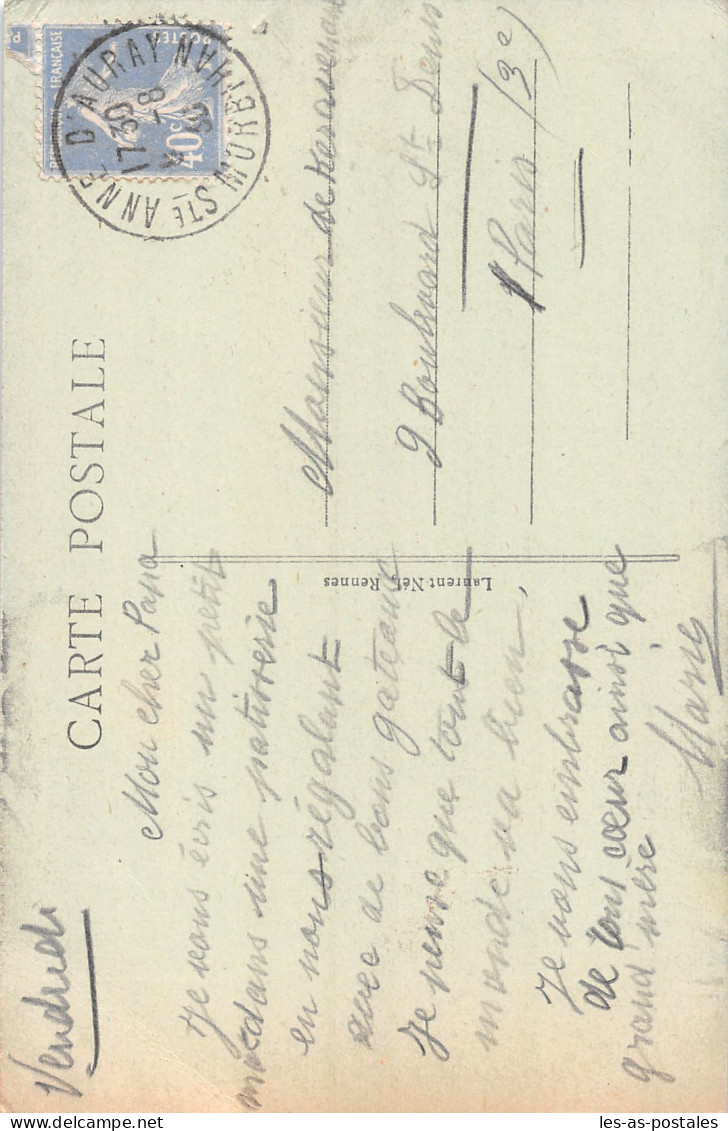 Vendredi
CARTE POSTALE
Mon cher Papa
Je vous écris un petit
mot dans une patisserie
en nous régalant
avec de bons gateaux
Je pense que tout le
monde va bien,
Je vous embrasse
de tout cœur ainsi que
grand mère
Marie
Laurent-Nél, Rennes
Monsieur de
9 Boulevard St Denis
Paris (3e)
STE ANNE D'AURAY MORBIHAN
17 30
-8
POSTES
FRANÇAISE
40c
les-as-postales